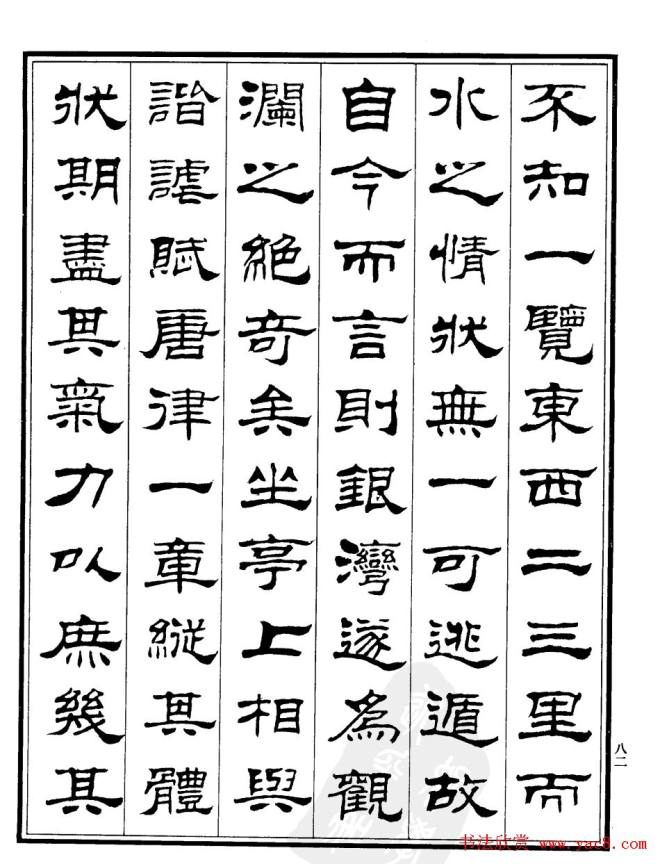 不知一覽東西二三里而
水之情狀無一可逃遁故
自今而言則銀灣遂爲觀
瀾之絕奇矣坐亭上相與
詣謔賦唐律一章縱其體
狀期盡其氣力以庶幾其
八二
书法欣赏 www.yac8.com